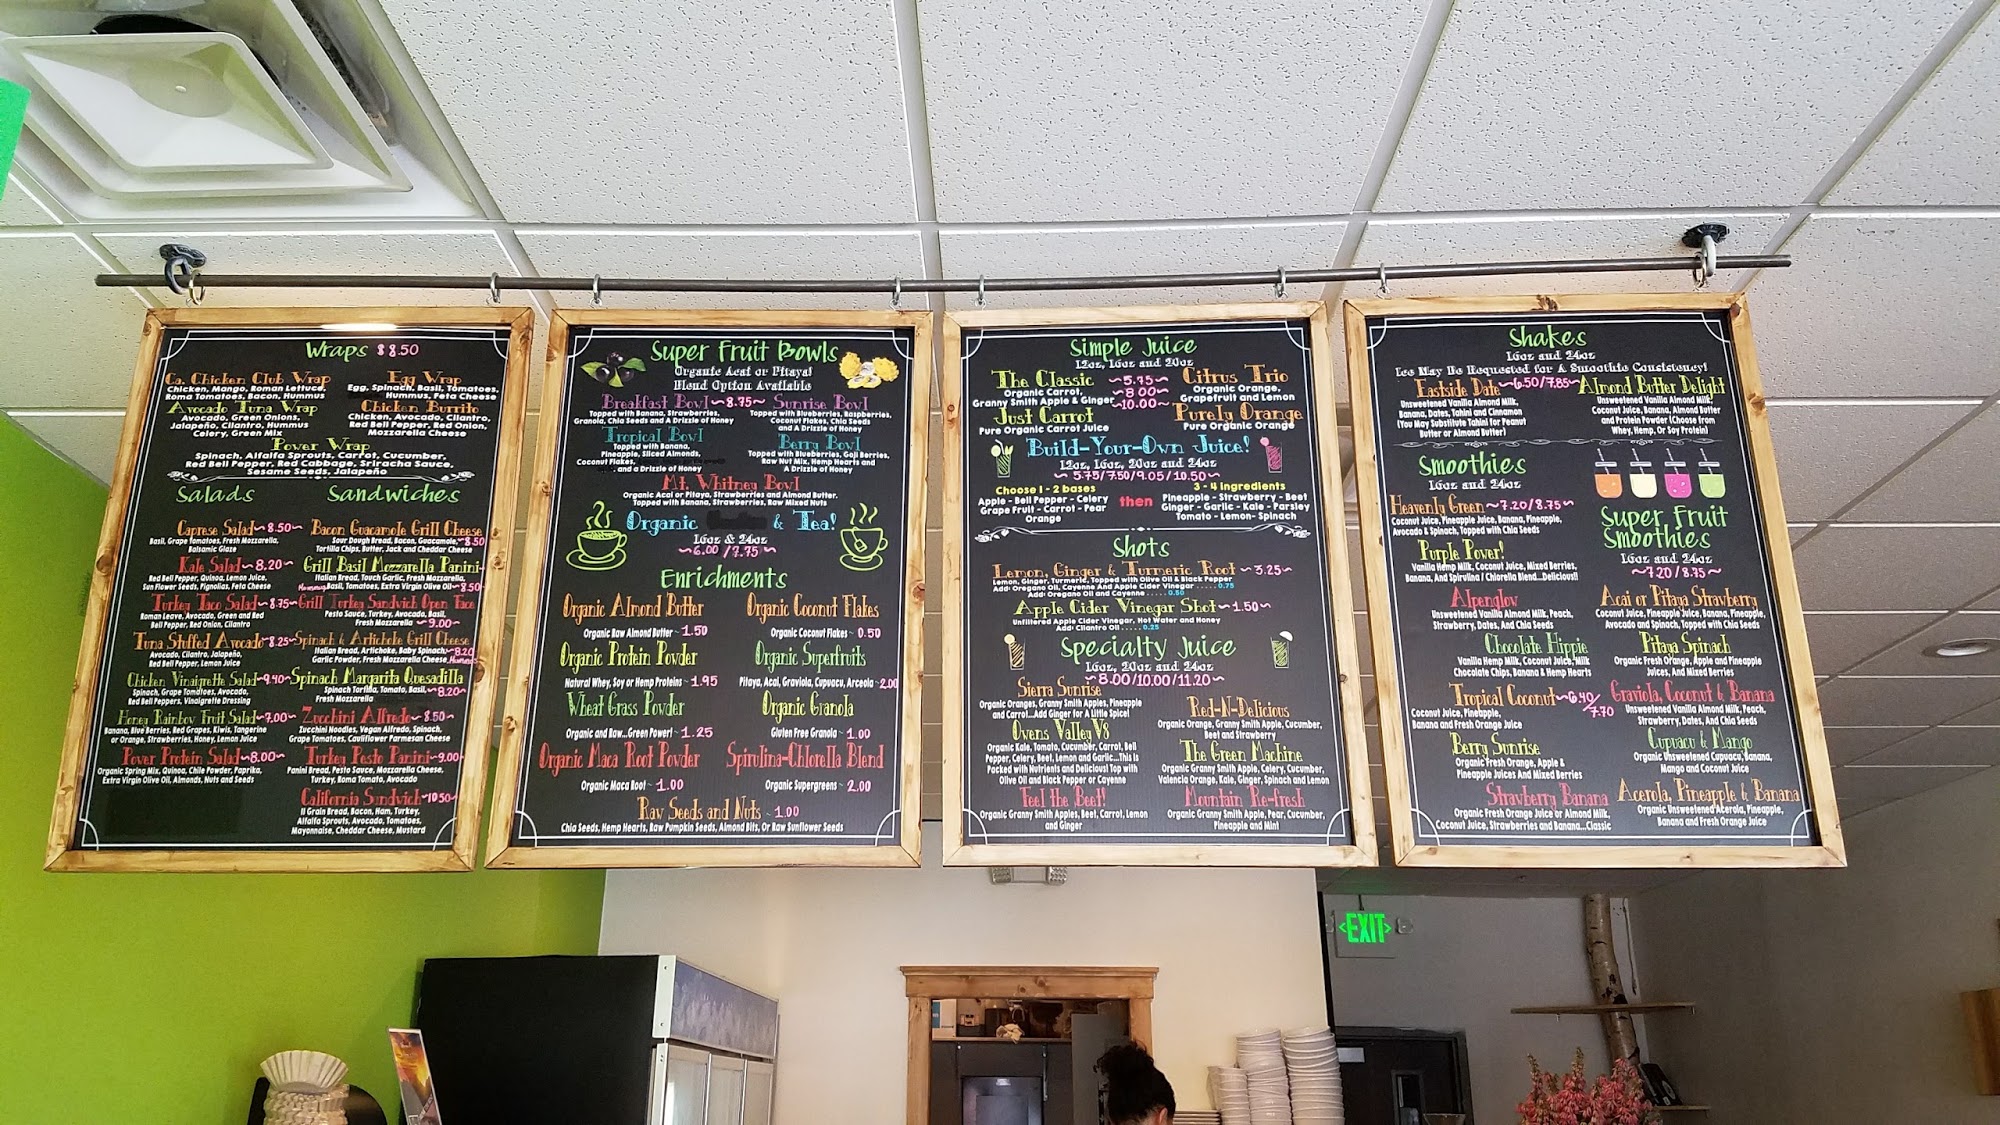 Wraps $8.50
Ca. Chicken Club Wrap
Chicken, Mango, Roman Lettuce,
Roma Tomatoes, Bacon, Hummus
Egg Wrap
Egg, Spinach, Basil, Tomatoes,
Hummus, Feta Cheese
Avocado Tuna Wrap
Avocado, Green Onions,
Jalapeño, Cilantro, Hummus
Celery, Green Mix
Chicken Burrito
Chicken, Avocado, Cilantro,
Red Bell Pepper, Red Onion,
Mozzarella Cheese
Power Wrap
Spinach, Alfalfa Sprouts, Carrot, Cucumber,
Red Bell Pepper, Red Cabbage, Sriracha Sauce,
Sesame Seeds, Jalapeño
Salads
Caprese Salad~8.50~
Basil, Grape Tomatoes, Fresh Mozzarella,
Balsamic Glaze
Kale Salad~8.20~
Red Bell Pepper, Quinoa, Lemon Juice,
Sun Flower Seeds, Pignolias, Feta Cheese
Turkey Taco Salad~8.75~
Roman Leave, Avocado, Green and Red
Bell Pepper, Red Onion, Cilantro
Tuna Stuffed Avocado~8.25~
Avocado, Cilantro, Jalapeño,
Red Bell Pepper, Lemon Juice
Chicken Vinaigrette Salad~9.40~
Spinach, Grape Tomatoes, Avocado,
Red Bell Peppers, Vinaigrette Dressing
Honey Rainbow Fruit Salad~7.00~
Banana, Blue Berries, Red Grapes, Kiwis, Tangerine
or Orange, Strawberries, Honey, Lemon Juice
Power Protein Salad~8.00~
Organic Spring Mix, Quinoa, Chile Powder, Paprika,
Extra Virgin Olive Oil, Almonds, Nuts and Seeds
Sandwiches
Bacon Guacamole Grill Cheese
Sour Dough Bread, Bacon, Guacamole,~8.50
Tortilla Chips, Butter, Jack and Cheddar Cheese
Grill Basil Mozzarella Panini~
Italian Bread, Touch Garlic, Fresh Mozzarella,
Basil, Tomatoes, Extra Virgin Olive Oil~8.50~
Grill Turkey Sandwich Open Face
Pesto Sauce, Turkey, Avocado, Basil,
Fresh Mozzarella ~9.00~
Spinach & Artichoke Grill Cheese
Italian Bread, Artichoke, Baby Spinach,~8.20
Garlic Powder, Fresh Mozzarella Cheese,
Spinach Margarita Quesadilla
Spinach Tortilla, Tomato, Basil,~8.20~
Fresh Mozzarella
Zucchini Alfredo~8.50~
Zucchini Noodles, Vegan Alfredo, Spinach,
Grape Tomatoes, Cauliflower Parmesan Cheese
Turkey Pesto Panini~9.00~
Panini Bread, Pesto Sauce, Mozzarella Cheese,
Turkey, Roma Tomato, Avocado
California Sandwich~10.50~
11 Grain Bread, Bacon, Ham, Turkey,
Alfalfa Sprouts, Avocado, Tomatoes,
Mayonnaise, Cheddar Cheese, Mustard
Super Fruit Bowls
Organic Acai or Pitaya!
Blend Option Available
Breakfast Bowl~8.75~
Topped with Banana, Strawberries,
Granola, Chia Seeds and A Drizzle of Honey
Sunrise Bowl
Topped with Blueberries, Raspberries,
Coconut Flakes, Chia Seeds
and A Drizzle of Honey
Tropical Bowl
Topped with Banana,
Pineapple, Sliced Almonds,
Coconut Flakes,
and a Drizzle of Honey
Berry Bowl
Topped with Blueberries, Goji Berries,
Raw Nut Mix, Hemp Hearts and
A Drizzle of Honey
Mt. Whitney Bowl
Organic Acai or Pitaya, Strawberries and Almond Butter.
Topped with Banana, Strawberries, Raw Mixed Nuts
Organic & Tea!
16oz & 24oz
~6.00 /7.75~
Enrichments
Organic Almond Butter
Organic Raw Almond Butter~1.50
Organic Coconut Flakes
Organic Coconut Flakes~0.50
Organic Protein Powder
Natural Whey, Soy or Hemp Proteins~1.95
Organic Superfruits
Pitaya, Acai, Graviola, Cupuacu, Arceola~2.00
Wheat Grass Powder
Organic and Raw...Green Power!~1.25
Organic Granola
Gluten Free Granola~1.00
Organic Maca Root Powder
Organic Maca Root~1.00
Spirulina-Chlorella Blend
Organic Supergreens~2.00
Raw Seeds and Nuts~1.00
Chia Seeds, Hemp Hearts, Raw Pumpkin Seeds, Almond Bits, Or Raw Sunflower Seeds
Simple Juice
12oz, 16oz and 20oz
The Classic ~5.75~
Organic Carrot, ~8.00
Granny Smith Apple & Ginger ~10.00~
Citrus Trio
Organic Orange,
Grapefruit and Lemon
Just Carrot
Pure Organic Carrot Juice
Purely Orange
Pure Organic Orange
Build-Your-Own Juice!
12oz, 16oz, 20oz and 24oz
~5.75/7.50/9.05/10.50~
Choose 1 - 2 bases
Apple - Bell Pepper - Celery
Grape Fruit - Carrot - Pear
Orange
then
3 - 4 ingredients
Pineapple - Strawberry - Beet
Ginger - Garlic - Kale - Parsley
Tomato - Lemon- Spinach
Shots
Lemon, Ginger & Turmeric Root ~3.25~
Lemon, Ginger, Turmeric, Topped with Olive Oil & Black Pepper
Add: Oregano Oil, Cayenne And Apple Cider Vinegar . . . . . 0.75
Add: Oregano Oil and Cayenne . . . . . 0.50
Apple Cider Vinegar Shot~1.50~
Unfiltered Apple Cider Vinegar, Hot Water and Honey
Add: Cilantro Oil . . . . . 0.25
Specialty Juice
16oz, 20oz and 24oz
~8.00/10.00/11.20~
Sierra Sunrise
Organic Oranges, Granny Smith Apples, Pineapple
and Carrot...Add Ginger For A Little Spice!
Red-N-Delicious
Organic Orange, Granny Smith Apple, Cucumber,
Beet and Strawberry
Owens Valley V8
Organic Kale, Tomato, Cucumber, Carrot, Bell
Pepper, Celery, Beet, Lemon and Garlic...This is
Packed with Nutrients and Delicious! Top with
Olive Oil and Black Pepper or Cayenne
The Green Machine
Organic Granny Smith Apple, Celery, Cucumber,
Valencia Orange, Kale, Ginger, Spinach and Lemon
Feel the Beet!
Organic Granny Smith Apples, Beet, Carrot, Lemon
and Ginger
Mountain Re-fresh
Organic Granny Smith Apple, Pear, Cucumber,
Pineapple and Mint
Shakes
16oz and 24oz
Ice May Be Requested for A Smoothie Consistency!
Eastside Date~6.50/7.85~
Unsweetened Vanilla Almond Milk,
Banana, Dates, Tahini and Cinnamon
(You May Substitute Tahini for Peanut
Butter or Almond Butter)
Almond Butter Delight
Unsweetened Vanilla Almond Milk,
Coconut Juice, Banana, Almond Butter
and Protein Powder (Choose from
Whey, Hemp, Or Soy Protein)
Smoothies
16oz and 24oz
Heavenly Green~7.20/8.75~
Coconut Juice, Pineapple Juice, Banana, Pineapple,
Avocado & Spinach, Topped with Chia Seeds
Purple Power!
Vanilla Hemp Milk, Coconut Juice, Mixed Berries,
Banana, And Spirulina / Chlorella Blend...Delicious!!
Alpenglow
Unsweetened Vanilla Almond Milk, Peach,
Strawberry, Dates, And Chia Seeds
Chocolate Hippie
Vanilla Hemp Milk, Coconut Juice, Milk
Chocolate Chips, Banana & Hemp Hearts
Tropical Coconut~6.40/
7.70
Coconut Juice, Pineapple,
Banana and Fresh Orange Juice
Berry Sunrise
Organic Fresh Orange, Apple &
Pineapple Juices And Mixed Berries
Strawberry Banana
Organic Fresh Orange Juice or Almond Milk,
Coconut Juice, Strawberries and Banana...Classic
Super Fruit
Smoothies
16oz and 24oz
~7.20 / 8.75~
Acai or Pitaya Strawberry
Coconut Juice, Pineapple Juice, Banana, Pineapple,
Avocado and Spinach, Topped with Chia Seeds
Pitaya Spinach
Organic Fresh Orange, Apple and Pineapple
Juices, And Mixed Berries
Graviola, Coconut & Banana
Unsweetened Vanilla Almond Milk, Peach,
Strawberry, Dates, And Chia Seeds
Cupuacu & Mango
Organic Unsweetened Cupuacu, Banana,
Mango and Coconut Juice
Acerola, Pineapple & Banana
Organic Unsweetened Acerola, Pineapple,
Banana and Fresh Orange Juice
EXIT